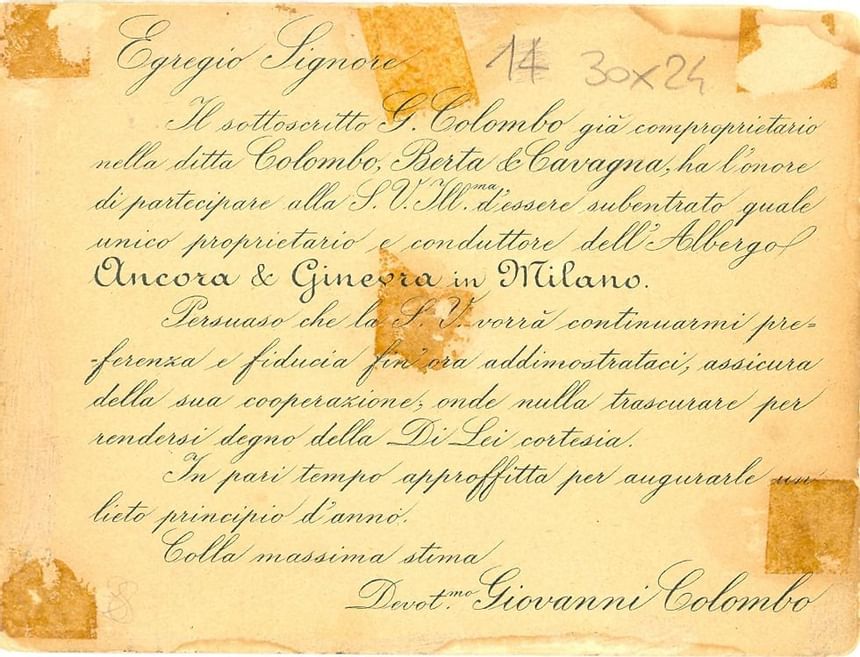 Egregio Signore
14 30x24
Il sottoscritto G. Colombo già comproprietario
nella ditta Colombo, Berta & Cavagna, ha l'onore
di partecipare alla S. V. Ill.ma d'essere subentrato quale
unico proprietario e conduttore dell'Albergo
Ancora & Ginevra in Milano.
Persuaso che la S. V. vorrà continuarmi pre=
-ferenza e fiducia fin'ora addimostrataci, assicura
della sua cooperazione, onde nulla trascurare per
rendersi degno della Di Lei cortesia.
In pari tempo approffitta per augurarle un
lieto principio d'anno.
Colla massima stima
Devot.mo Giovanni Colombo